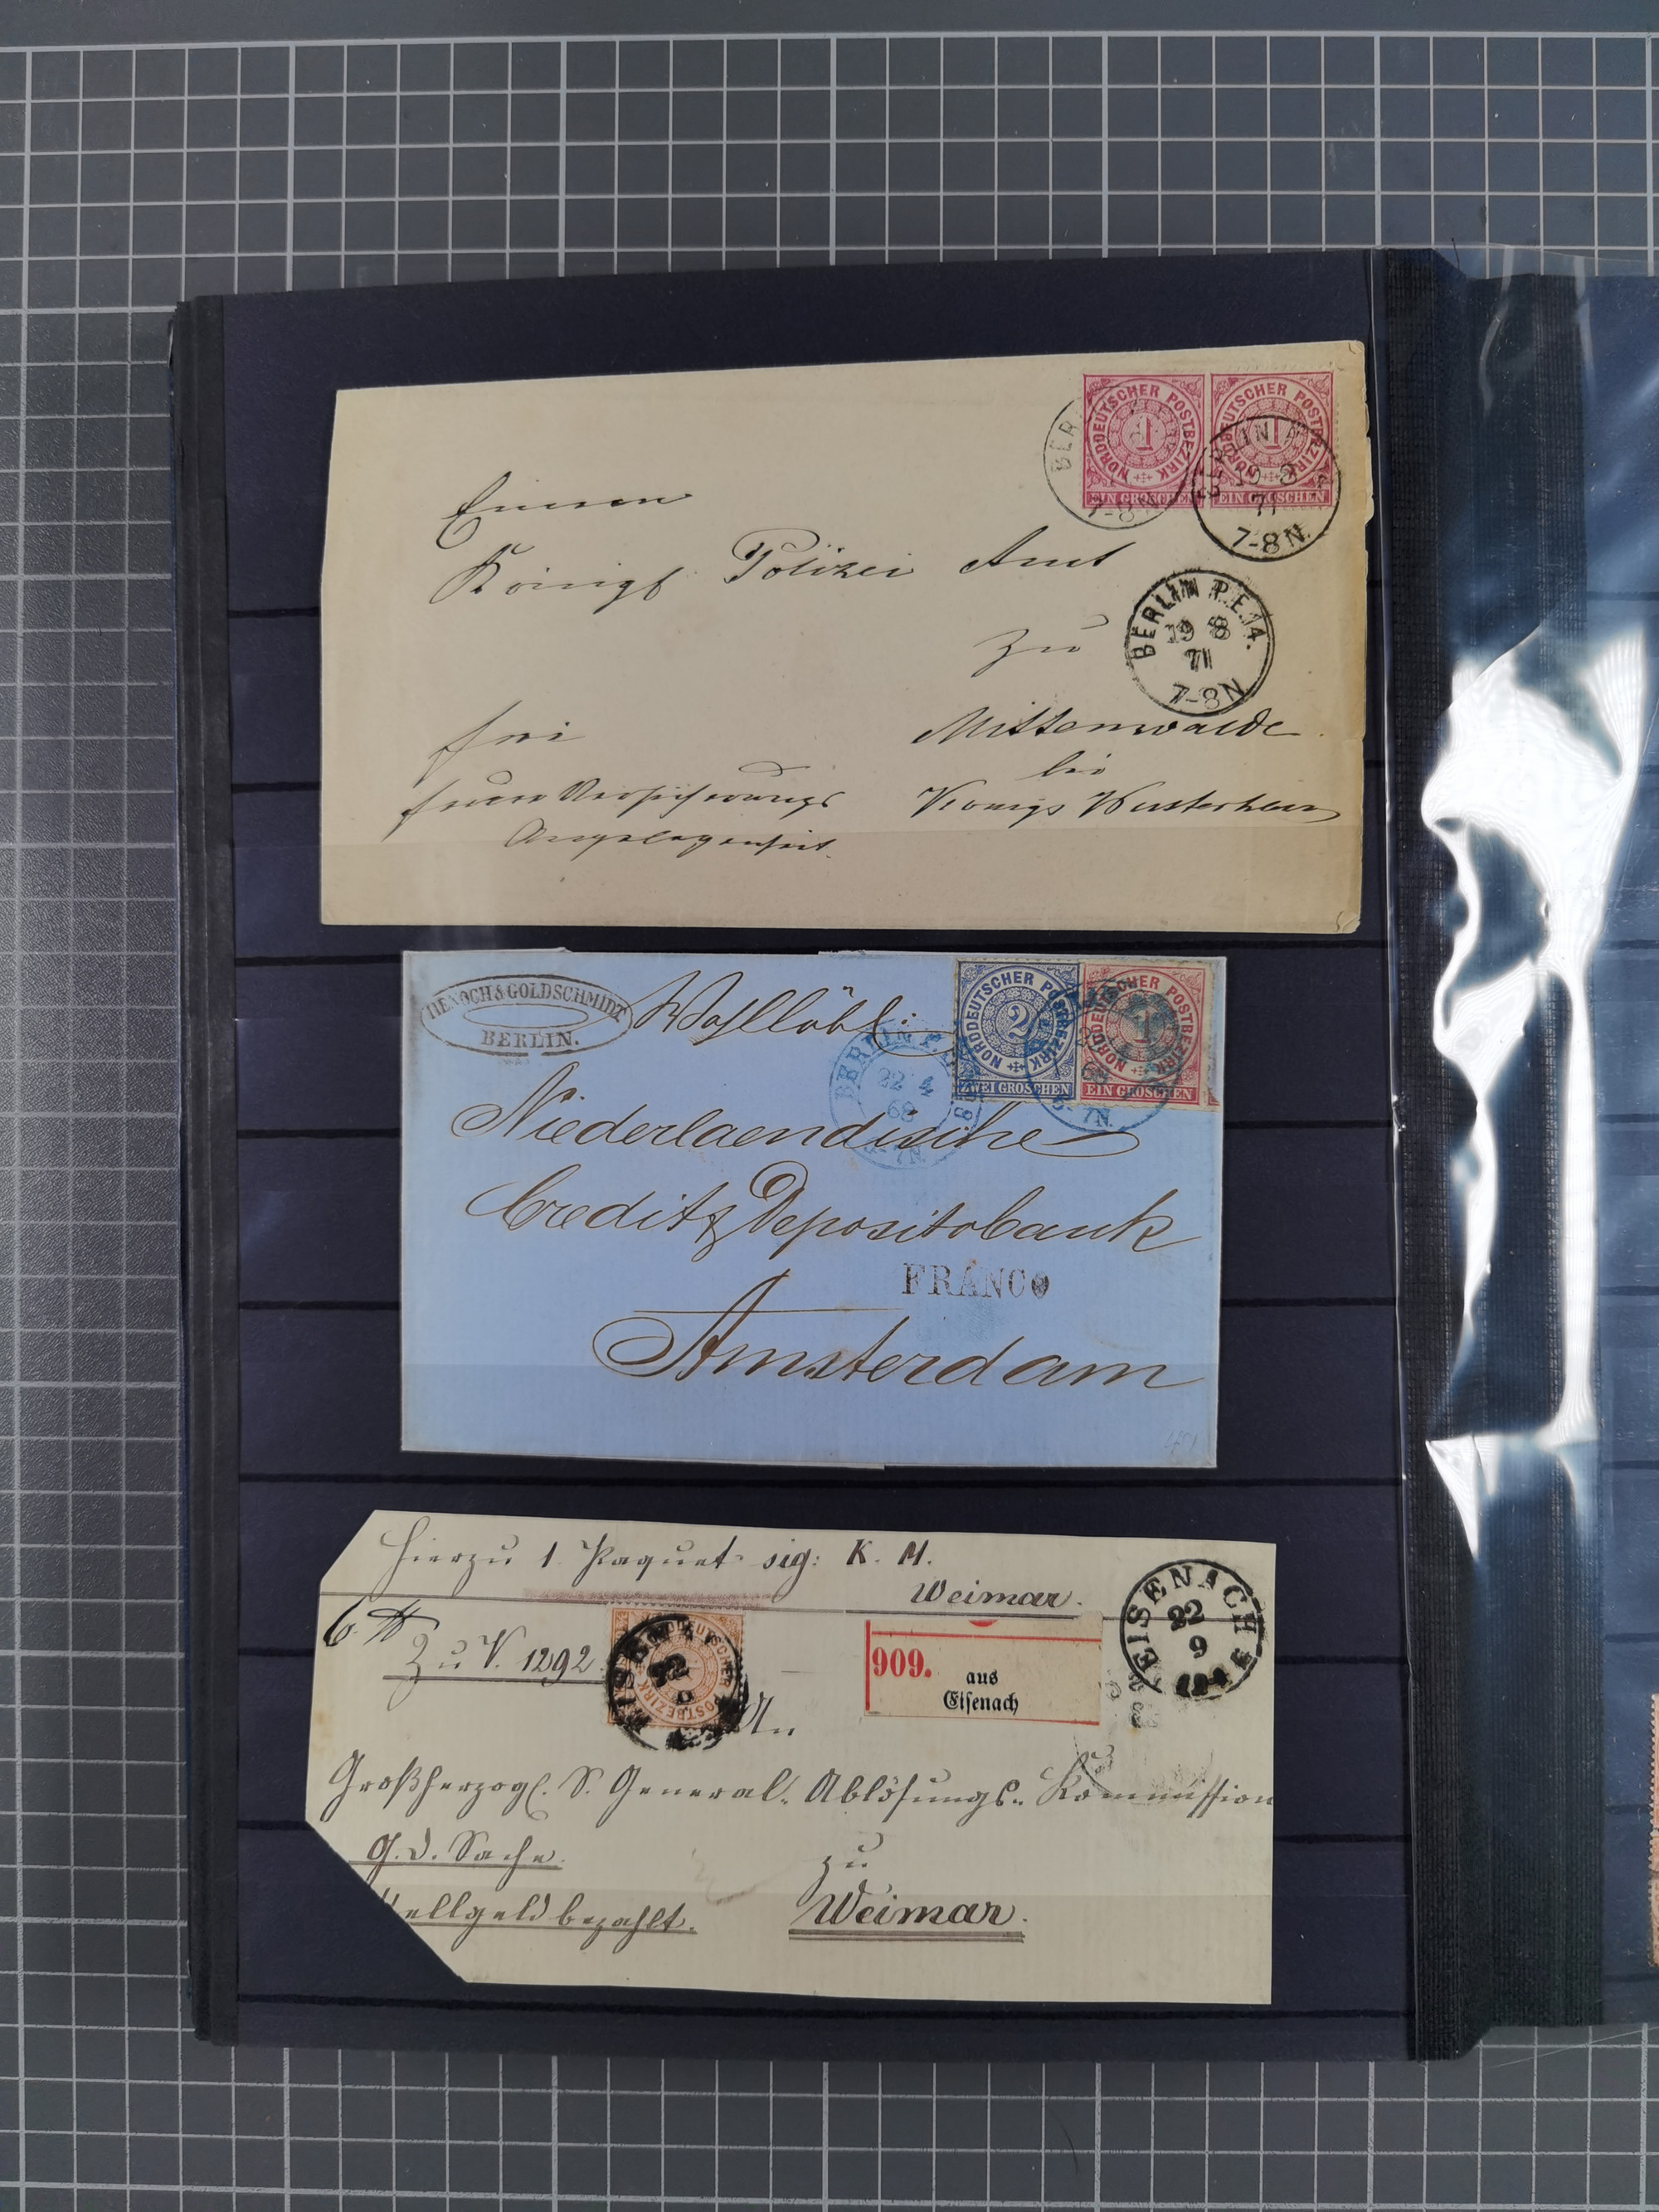 NORDDEUTSCHER POSTBEZIRK
1
EIN GROSCHEN
NORDDEUTSCHER POSTBEZIRK
1
EIN GROSCHEN
BER
7-8N
BERLIN
19 8
71
7-8N.
Einem
Königl Polizei Amt
zu
BERLIN P.E.
19 8
71
7-8N
frei
Mittenwalde
bei
Feuer Versicherungs
Königs Wusterhausen
Angelegenheit.
HENOCH & GOLDSCHMIDT
BERLIN.
Wohllöbl:
NORDDEUTSCHER POSTBEZIRK
2
ZWEI GROSCHEN
NORDDEUTSCHER POSTBEZIRK
1
EIN GROSCHEN
BERLIN P.
22 4
68
7N.
7N.
Niederlaendische
Credit & Depositobank
FRANCO
Amsterdam
hierzu 1 Paquet sig: K. M.
Weimar.
6
Zu V. 1292.
NORDDEUTSCHER POSTBEZIRK
22
909. aus
Eisenach
EISENACH
22
9
An
Großherzogl. S. General-Ablösungs-Kommission
G. d. Sache.
zu
ellgeld bezahlt.
Weimar.